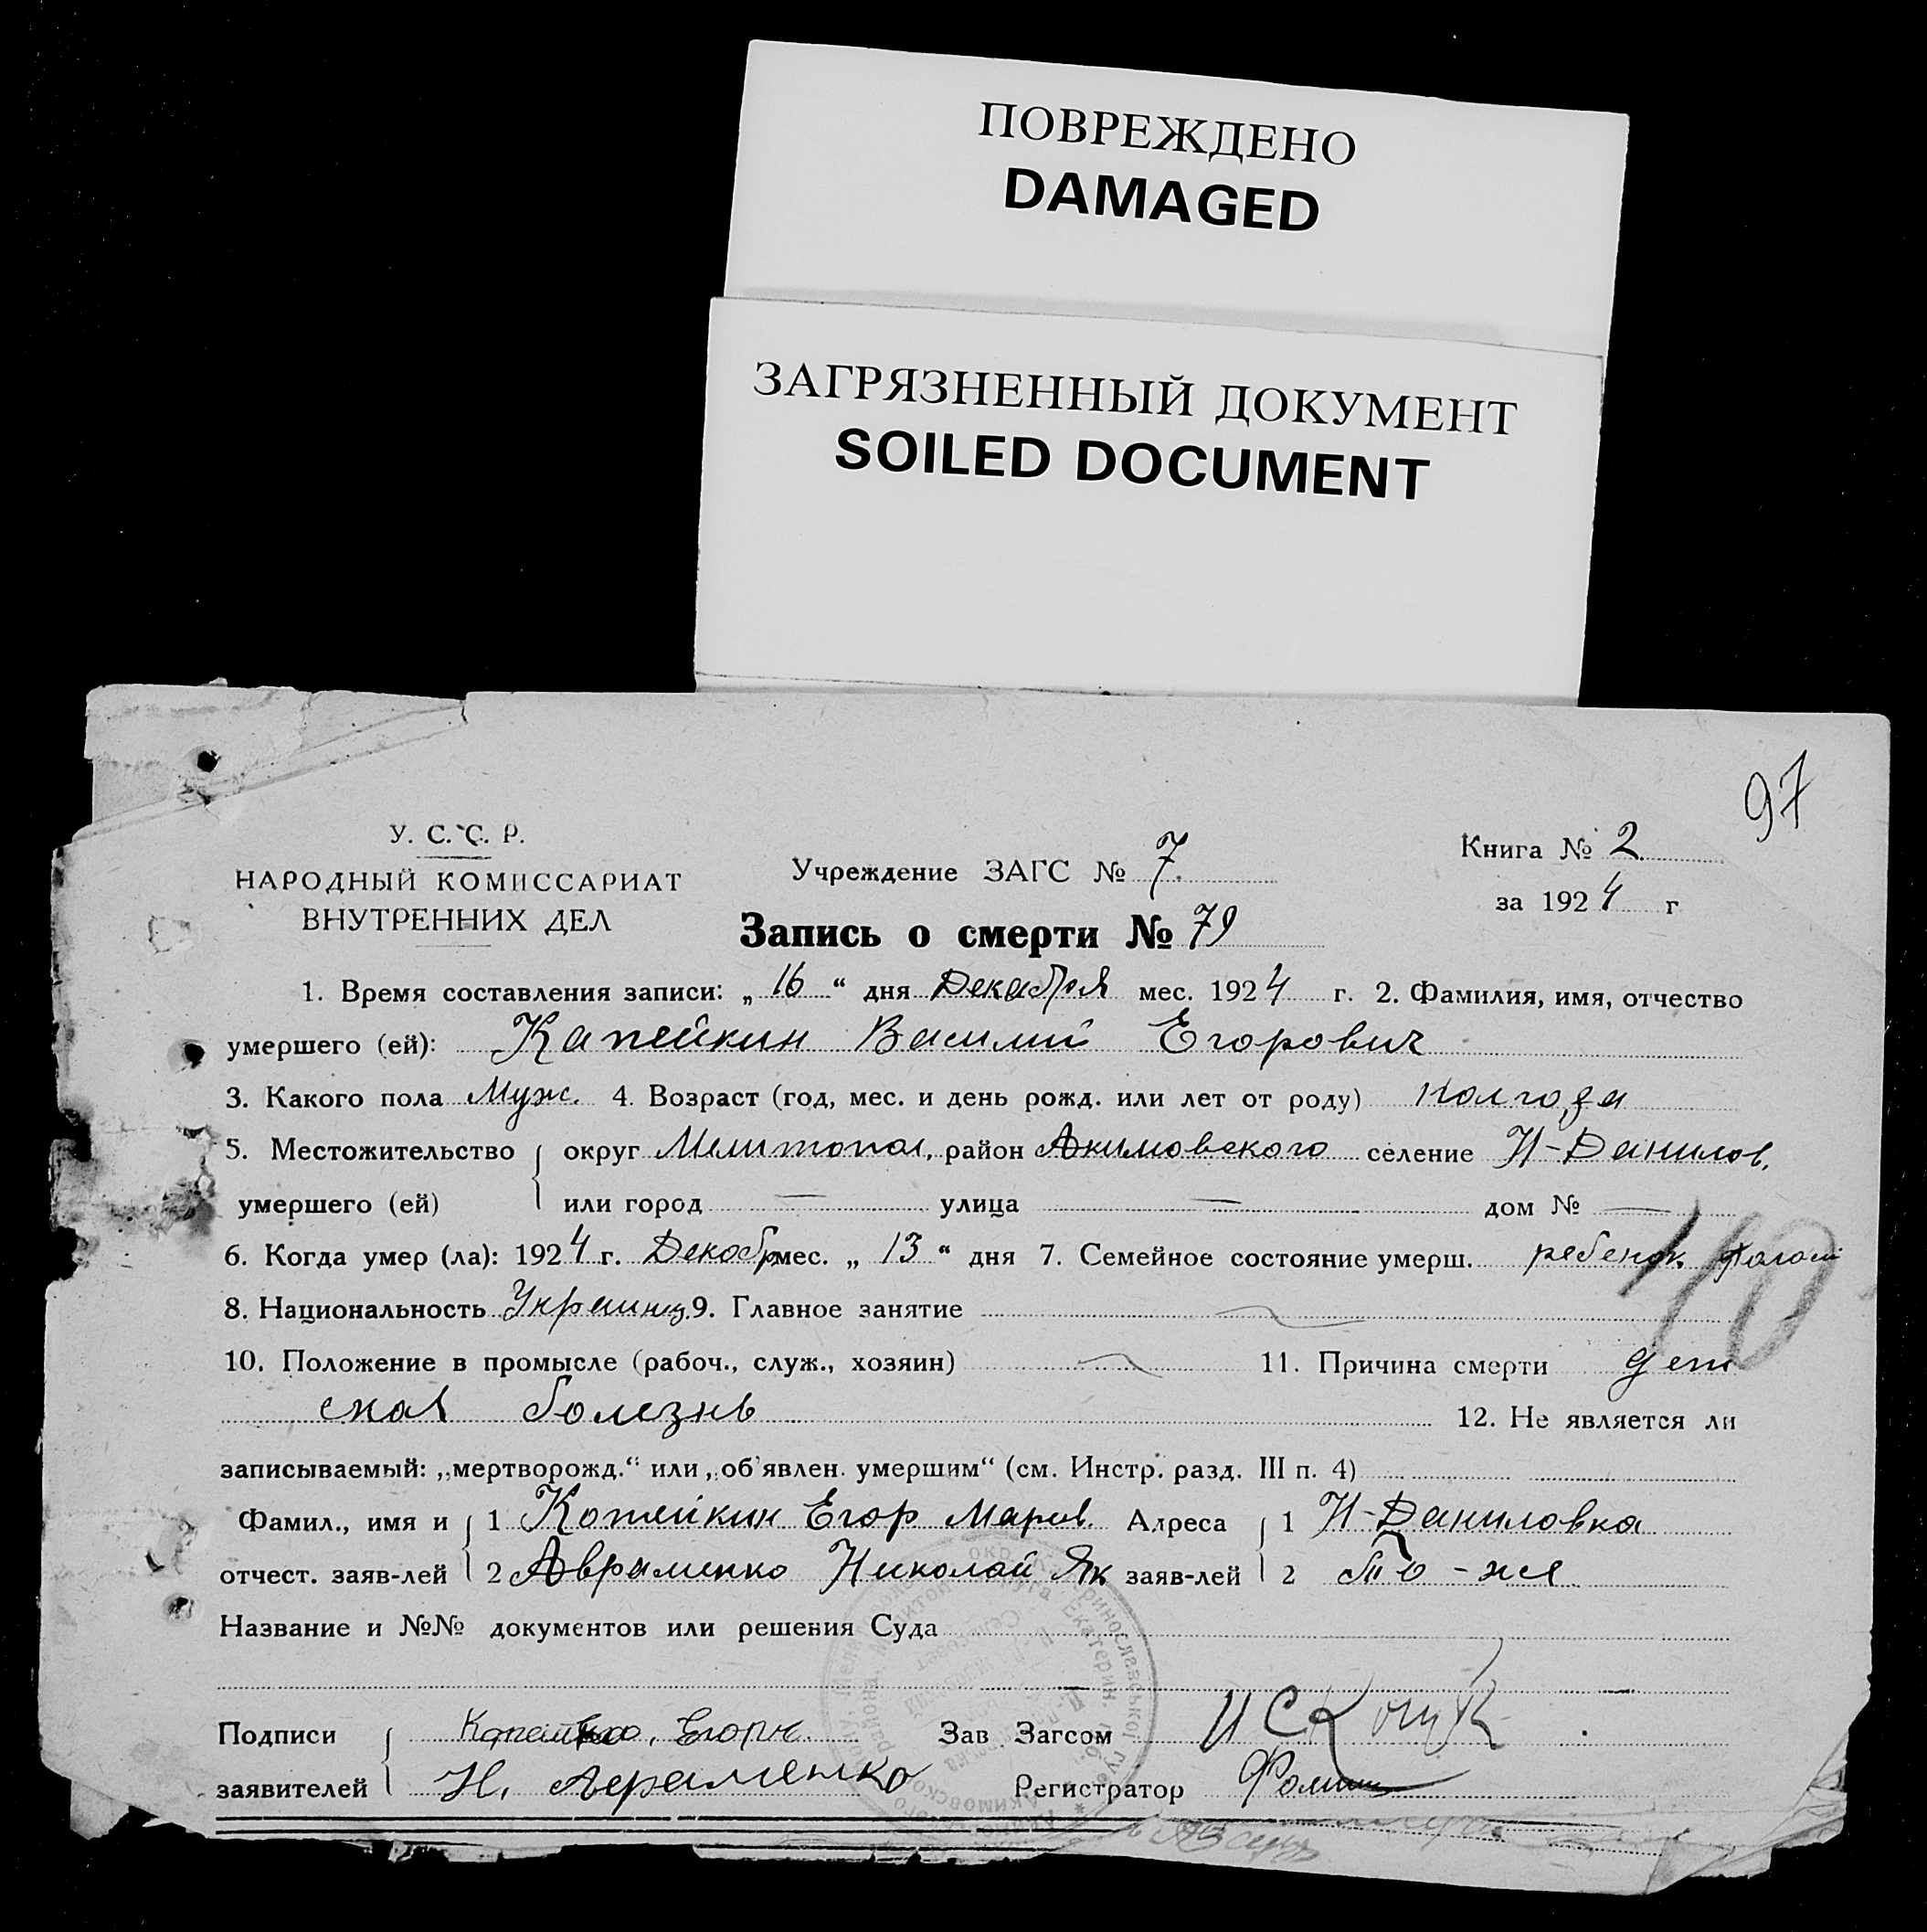 ПОВРЕЖДЕНО
DAMAGED
ЗАГРЯЗНЕННЫЙ ДОКУМЕНТ
SOILED DOCUMENT
97
У. С. С. Р.
НАРОДНЫЙ КОМИССАРИАТ
ВНУТРЕННИХ ДЕЛ
Учреждение ЗАГС № 7.
Книга № 2
за 1924 г
Запись о смерти № 79
1. Время составления записи: „ 16 “ дня Декабря мес. 1924 г. 2. Фамилия, имя, отчество
умершего (ей): Капейкин Василий Егорович
3. Какого пола Муж. 4. Возраст (год, мес. и день рожд. или лет от роду) полгода
5. Местожительство округ Мелитопол, район Акимовского селение Н-Данилов.
умершего (ей) или город — улица — дом № —
6. Когда умер (ла): 1924 г. Декабр мес. „ 13 “ дня 7. Семейное состояние умерш. ребенок
110
8. Национальность Украинц. 9. Главное занятие
10. Положение в промысле (рабоч., служ., хозяин) 11. Причина смерти дет
ская болезнь 12. Не является ли
записываемый: „мертворожд.“ или „об'явлен. умершим“ (см. Инстр. разд. III п. 4)
Фамил., имя и 1 Копейкин Егор Адреса 1 Н-Даниловка
отчест. заяв-лей 2 Авраменко Николай Як заяв-лей 2 То-же
Название и №№ документов или решения Суда
Подписи Зав Загсом
заявителей Н. Авраменко Регистратор Фомин